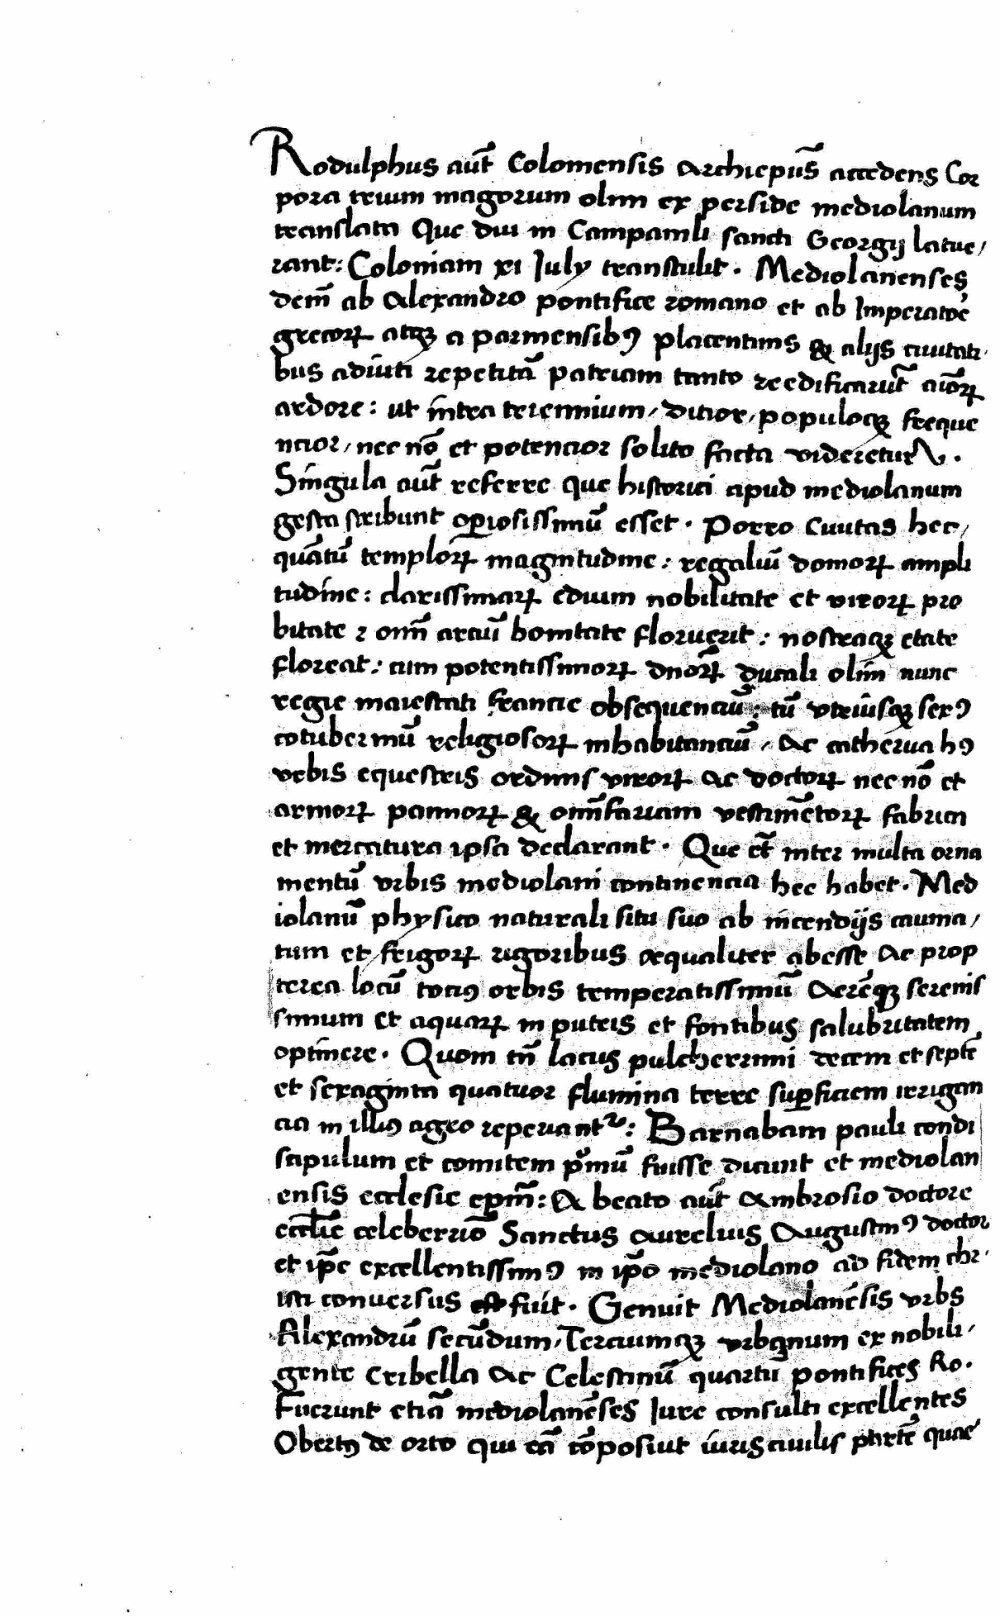 Rodulphus aūt Coloniensis Archiepūs accedens Cor
pora trium magorum olim ex perside mediolanum
translata Que diu in Campanili sancti Georgij latue,
rant: Coloniam xi July transtulit. Mediolanenses
dem̄ ab Alexandro pontifice romano et ab Imperatoē
grecoꝝ atqꝫ a parmensibꝰ placentinis & alijs ciuitati
bus adiuti repetitā patriam tanto reedificarūt aīoꝝ
ardore: ut intra triennium, ditior, populoqꝫ freque
ncior, nec nō et potencior solito facta videretur.
Singula aūt referre que historici apud mediolanum
gesta scribunt operiosissimū esset. Porro Ciuitas hec,
quātū temploꝝ magnitudine: regaliū domoꝝ ampli
tudine: clarissimaꝝ edium nobilitate et viroꝝ pro
bitate ⁊ omī arciū bonitate floruerit: nostraqꝫ etate
floreat: cum potentissimoꝝ dnōꝝ ducali olim nunc
regie maiestati francie obsequenciū: tū vtriusqꝫ sexꝰ
cōtubernnū religiosoꝝ inhabitanciū, Ac catherua hꝰ
vrbis equestris ordinis viroꝝ ac doctoꝝ nec nō et
armoꝝ pannoꝝ & omīfariam vestimētoꝝ fabrica
et mercatura ipsa declarant. Que et̄ inter multa orna
mentū vrbis mediolani continencia hec habet. Med
iolanū physico naturali situ suo ab incendijs cauma,
tum et frigoꝝ rigoribus equaliter abesse Ac prop
terea locū tociꝰ orbis temperatissimū Aerēqꝫ serenis
simum et aquaꝝ in puteis et fontibus salubritatem
optinere. Quom tn̄ lacus pulcherrimi decem et septē
et sexaginta quatuor flumina terre suꝑficiem irrigan
cia in illiꝰ agro reperiantr: Barnabam pauli condi
scipulum et comitem pͥmū fuisse dicunt et mediolan
ensis ecclesie epm̄: A beato aūt Ambrosio doctore
ecclīe celeberrīo Sanctus Aurelius Augustinꝰ doctor
et ip̄e excellentissimꝰ in ip̄o mediolano ad fidem chr
isti conversus fuit. Genuit Mediolanēsis vrbs
Alexandrū secūdum, Terciumqꝫ vrbanum ex nobili
gente Cribella Ac Celestinū quartū pontifices Ro.
Fuerunt etiā mediolanēses Jure consulti excellentes
Obertꝰ de orto qui eā cōposiut iuris ciuilis partē quae